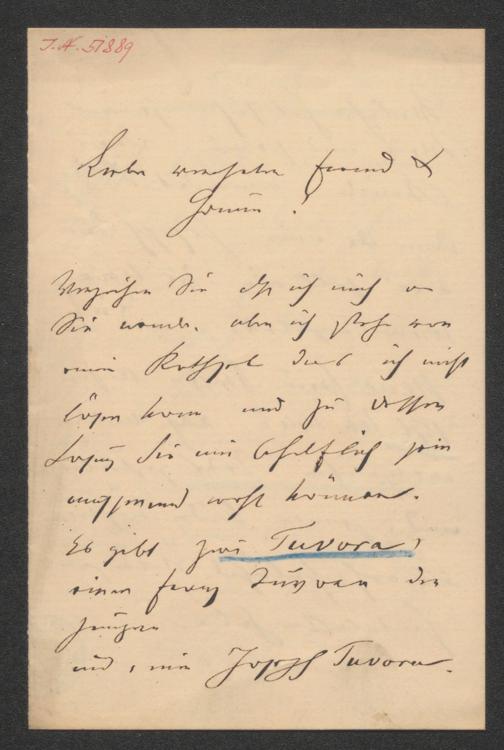 J.N. 51889
Lieber verehrter Freund &
Verzeihen Sie daß ich mich an
Sie wende. aber ich stehe vor
einem Rathsel das ich nicht
lösen kann und zu dessen
Losung Sie mir behilflich sein
wohl können.
Es gibt zwei Tuvora,
einen Franz Tuvora den
jüngern
und, einen Joseph Tuvora.